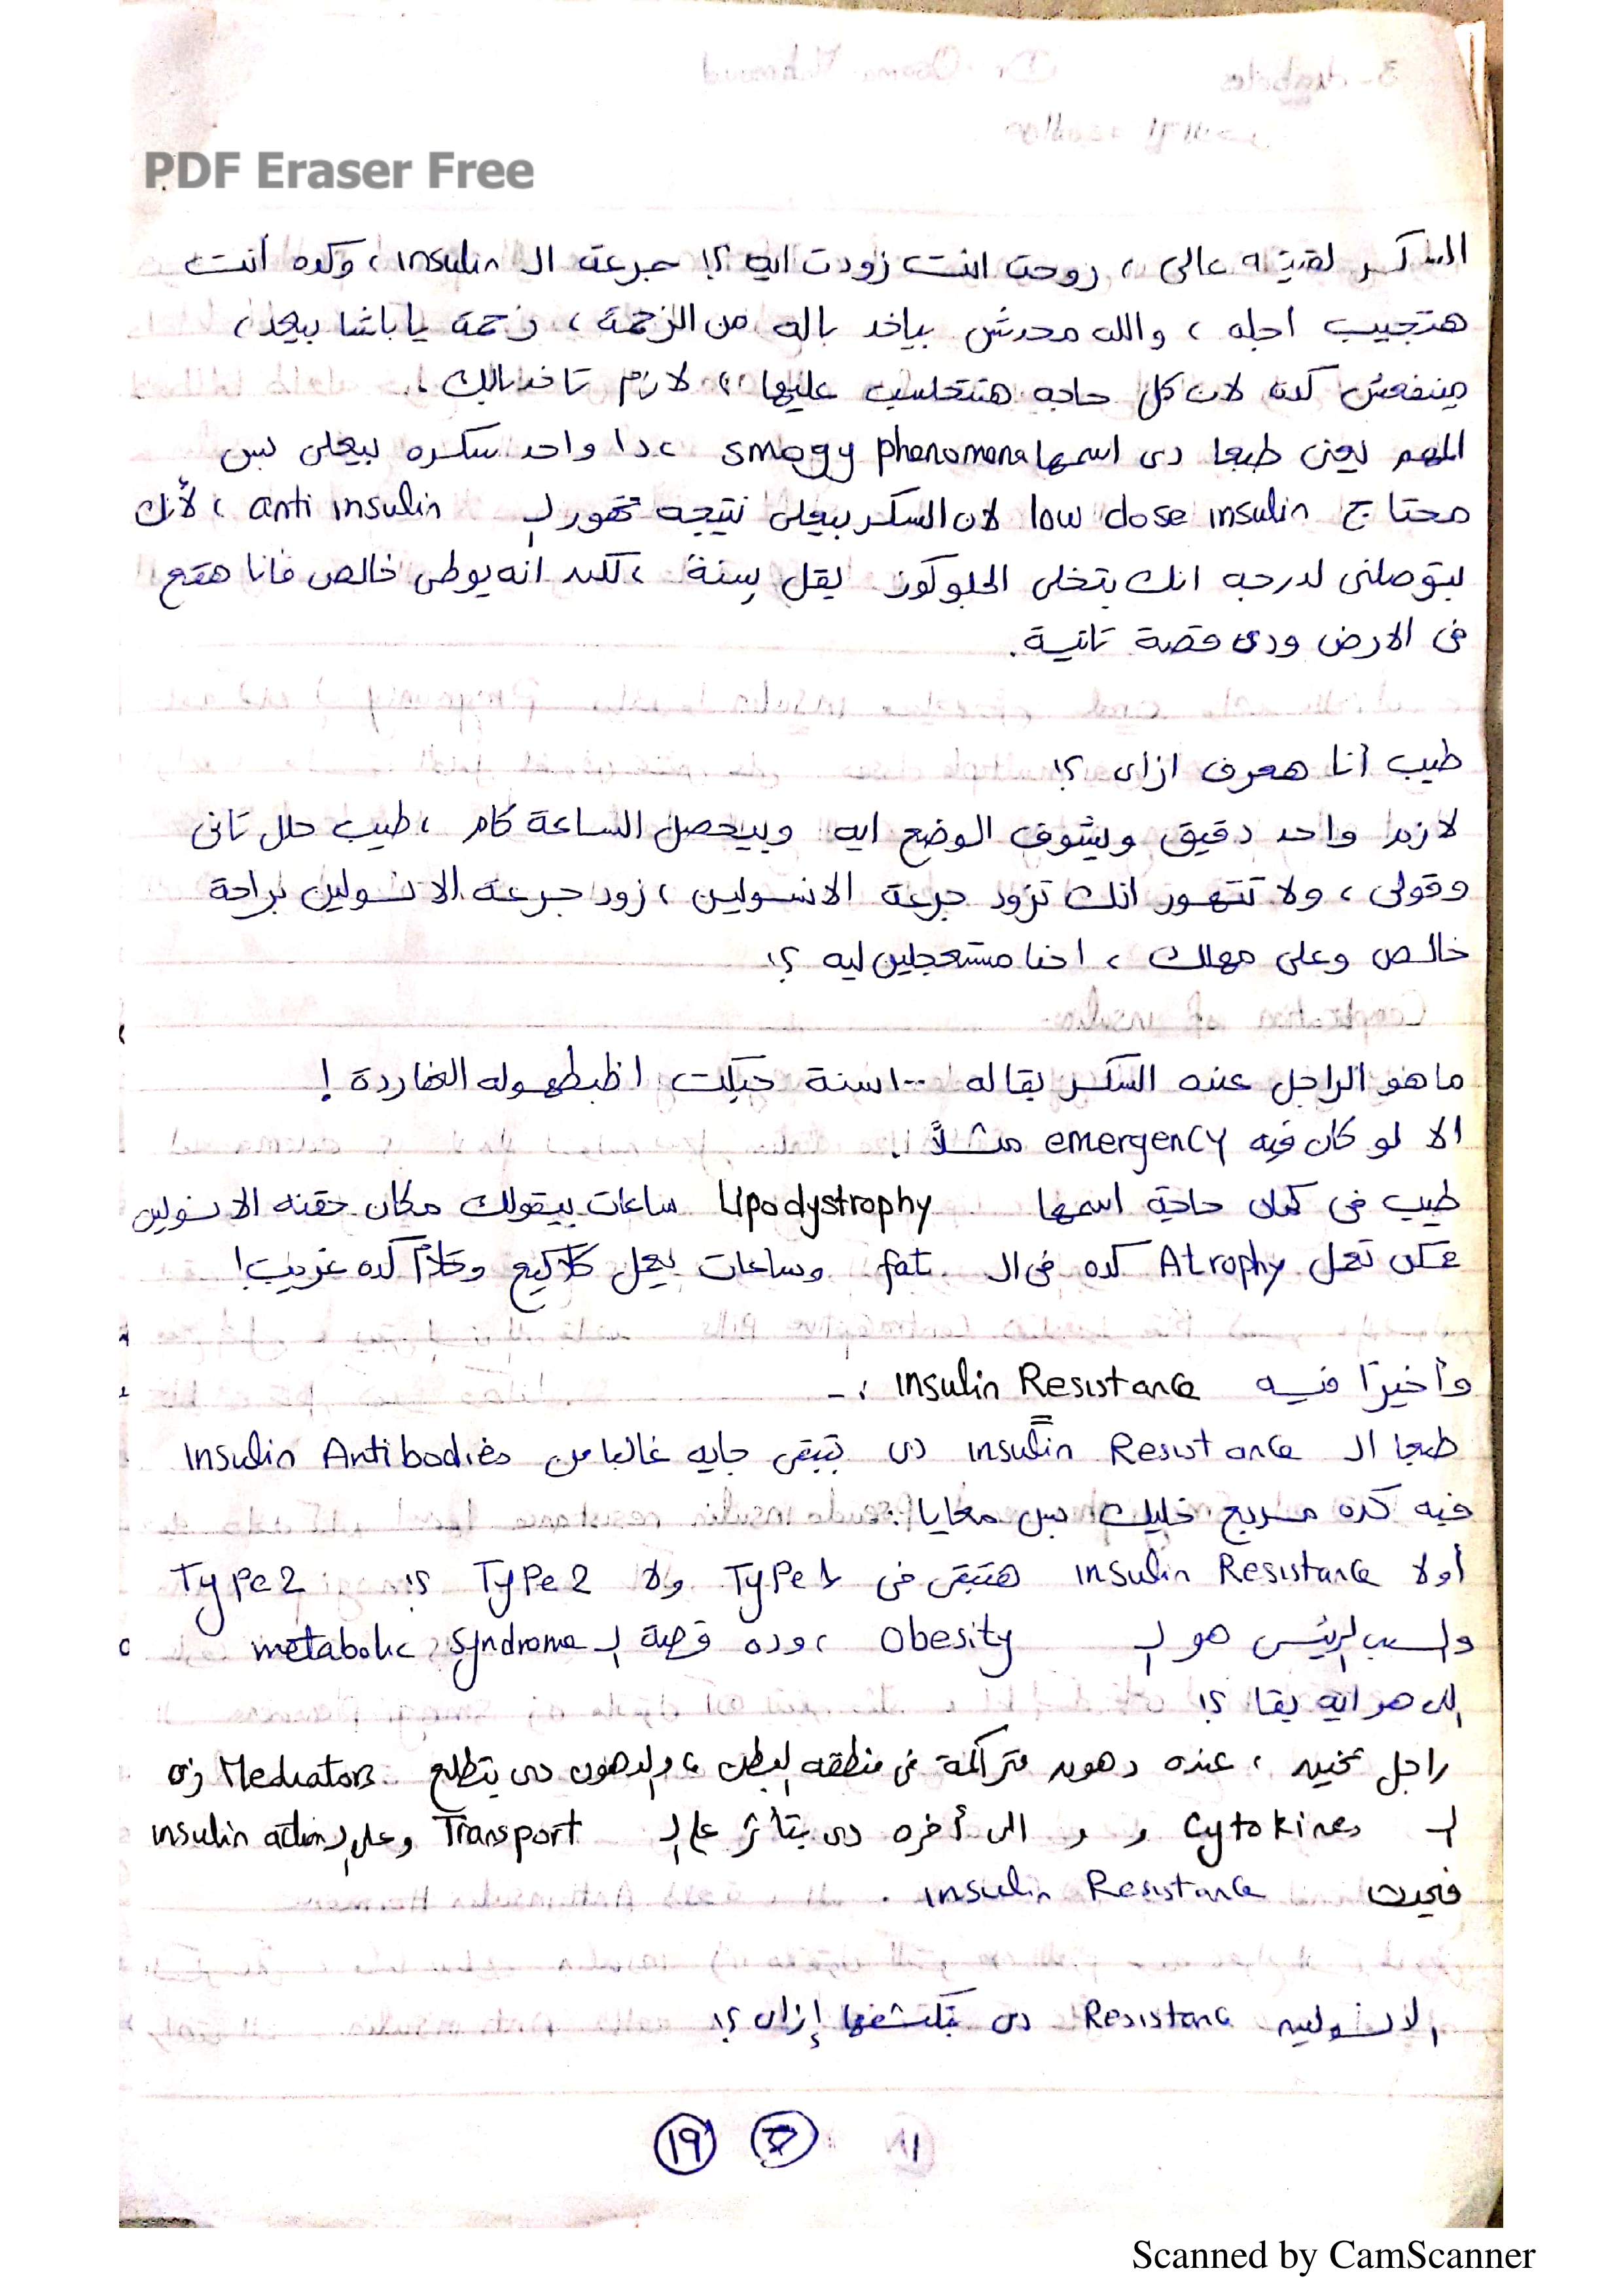 PDF Eraser Free
السكر لقيته عالى ، روحت انت زودت ايه ؟! جرعة الـ insulin ، وكده أنت
هتجيب اجله ، والله محدش بياخد باله من الزحمة ، زحمة يا باشا بيعد ،
مينفعش كده لان كل حاجه هتتحاسب عليها ،، لازم تاخد بالك .
المهم يعنى طبعا دى اسمها smogy phenomena ، دا واحد سكره بيعلى بس
محتاج low dose insulin لان السكر بيعلى نتيجه تهور لـ anti insulin ، لأنك
بتوصلنى لدرجه انك بتخلى الجلوكوز يقل سنة ، لكن انه يوطى خالص فانا هقع
فى الارض ودى قصة تانية .
طيب أنا هعرف ازاى ؟!
لازم واحد دقيق ويشوف الوضع ايه وبيحصل الساعة كام ، طيب حلل تانى
وقولى ، ولا تتهور انك تزود جرعة الانسولين ، زود جرعة الانسولين براحة
خالص وعلى مهلك ، احنا مستعجلين ليه ؟!
ما هو الراجل عنده السكر بقاله ١٠٠ سنة حبكت اظبطهوله النهاردة !
الا لو كان فيه emergency مثلاً .
طيب فى كمان حاجة اسمها Lipodystrophy ساعات بيقولك مكان حقنه الانسولين
ممكن تعمل Atrophy كده فى الـ fat وساعات يعمل كلاكيع وكلام كده غريب !
وأخيرًا فيه insulin Resistance :-
طبعا الـ insulin Resistance دى بتبقى جايه غالبا من insulin Antibodies
فيه كده سريع خليك بس معايا :
أولا insulin Resistance هتبقى فى Type 1 ولا Type 2 ؟! Type 2
والسبب الرئيسى هو الـ Obesity ، وده قصة الـ metabolic syndrome
اللى هو ايه بقا ؟!
راجل تخين ، عنده دهون متراكمة فى منطقه البطن ، والدهون دى بتطلع Mediators زى
الـ Cytokines و و الى أخره دى بتأثر على الـ Transport وعلى الـ insulin action
فيحدث insulin Resistance .
الانسولين Resistance دى بتكتشفها إزاى ؟!
١٩
Scanned by CamScanner